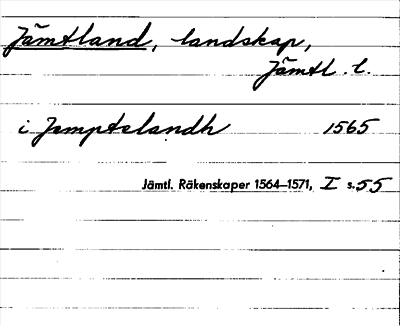 Jämtland, landskap,
Jämtl. l.
i Jemptelandh 1565
Jämtl. Räkenskaper 1564–1571, I s.55